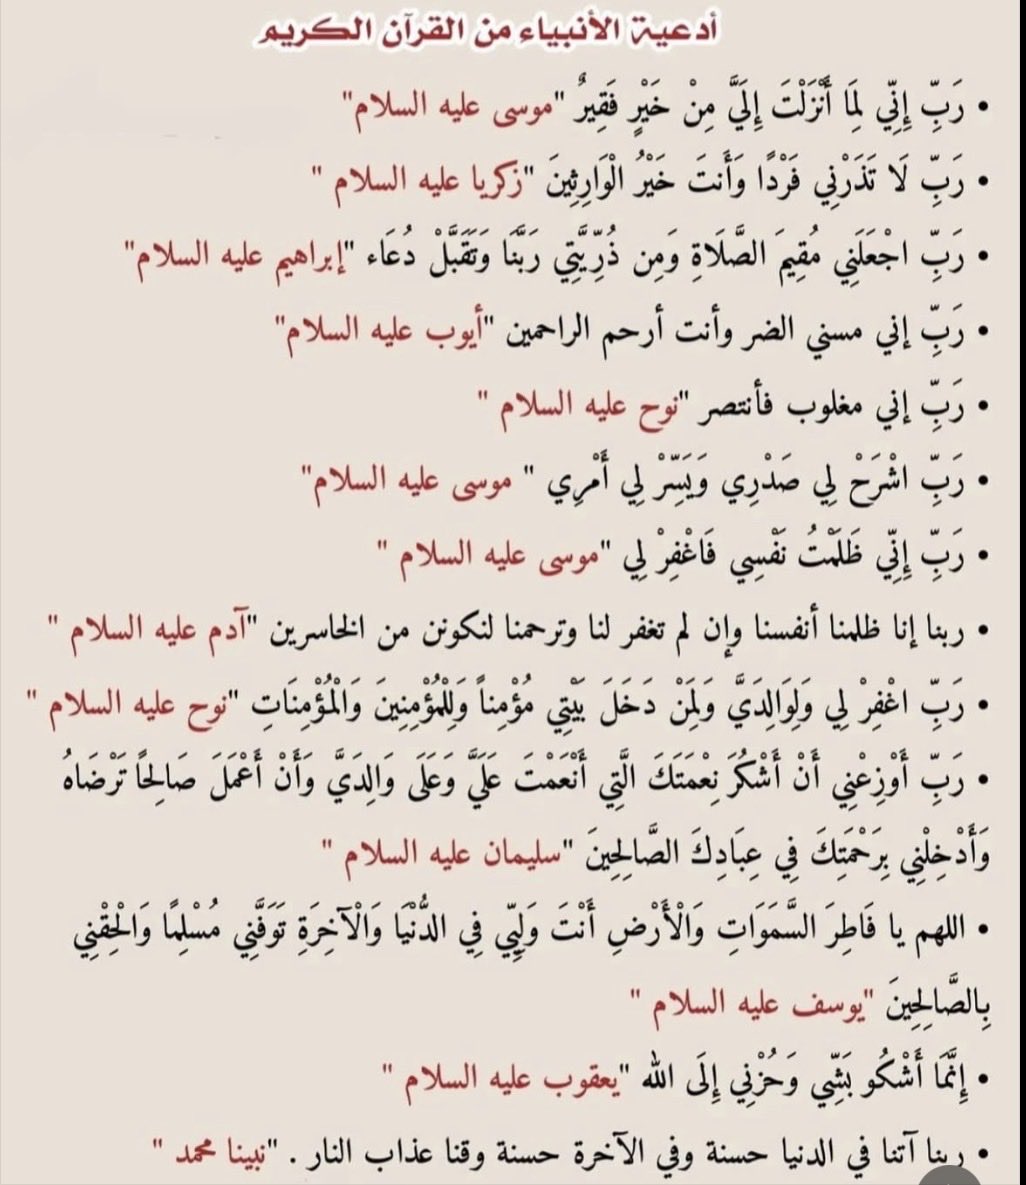 أدعية الأنبياء من القرآن الكريم
• رَبِّ إِنِّي لِمَا أَنْزَلْتَ إِلَيَّ مِنْ خَيْرٍ فَقِيرٌ "موسى عليه السلام"
• رَبِّ لَا تَذَرْنِي فَرْدًا وَأَنتَ خَيْرُ الْوَارِثِينَ "زكريا عليه السلام "
• رَبِّ اجْعَلَنِي مُقِيمَ الصَّلَاةِ وَمِن ذُرِّيَّتِي رَبَّنَا وَتَقَبَّلْ دُعَاء "إبراهيم عليه السلام"
• رَبِّ إني مسني الضر وأنت أرحم الراحمين "أيوب عليه السلام"
• رَبِّ إني مغلوب فأنتصر "نوح عليه السلام "
• رَبِّ اشْرَحْ لِي صَدْرِي وَيَسِّرْ لِي أَمْرِي " موسى عليه السلام"
• رَبِّ إِنِّي ظَلَمْتُ نَفْسِي فَاغْفِرْ لِي "موسى عليه السلام "
• ربنا إنا ظلمنا أنفسنا وإن لم تغفر لنا وترحمنا لنكونن من الخاسرين "آدم عليه السلام "
• رَبِّ اغْفِرْ لِي وَلِوَالِدَيَّ وَلِمَنْ دَخَلَ بَيْتِي مُؤْمِناً وَلِلْمُؤْمِنِينَ وَالْمُؤْمِنَاتِ "نوح عليه السلام "
• رَبِّ أَوْزِعْنِي أَنْ أَشْكُرَ نِعْمَتَكَ الَّتِي أَنْعَمْتَ عَلَيَّ وَعَلَى وَالِدَيَّ وَأَنْ أَعْمَلَ صَالِحاً تَرْضَاهُ
وَأَدْخِلْنِي بِرَحْمَتِكَ فِي عِبَادِكَ الصَّالِحِينَ "سليمان عليه السلام "
• اللهم يا فَاطِرَ السَّمَوَاتِ وَالْأَرْضِ أَنْتَ وَلِيِّي فِي الدُّنْيَا وَالْآخِرَةِ تَوَفَّنِي مُسْلِمًا وَالْحِقْنِي
بِالصَّالِحِينَ "يوسف عليه السلام "
• إِنَّمَا أَشْكُو بَثِّي وَحُزْنِي إِلَى الله "يعقوب عليه السلام "
• ربنا آتنا في الدنيا حسنة وفي الآخرة حسنة وقنا عذاب النار . "نبينا محمد "